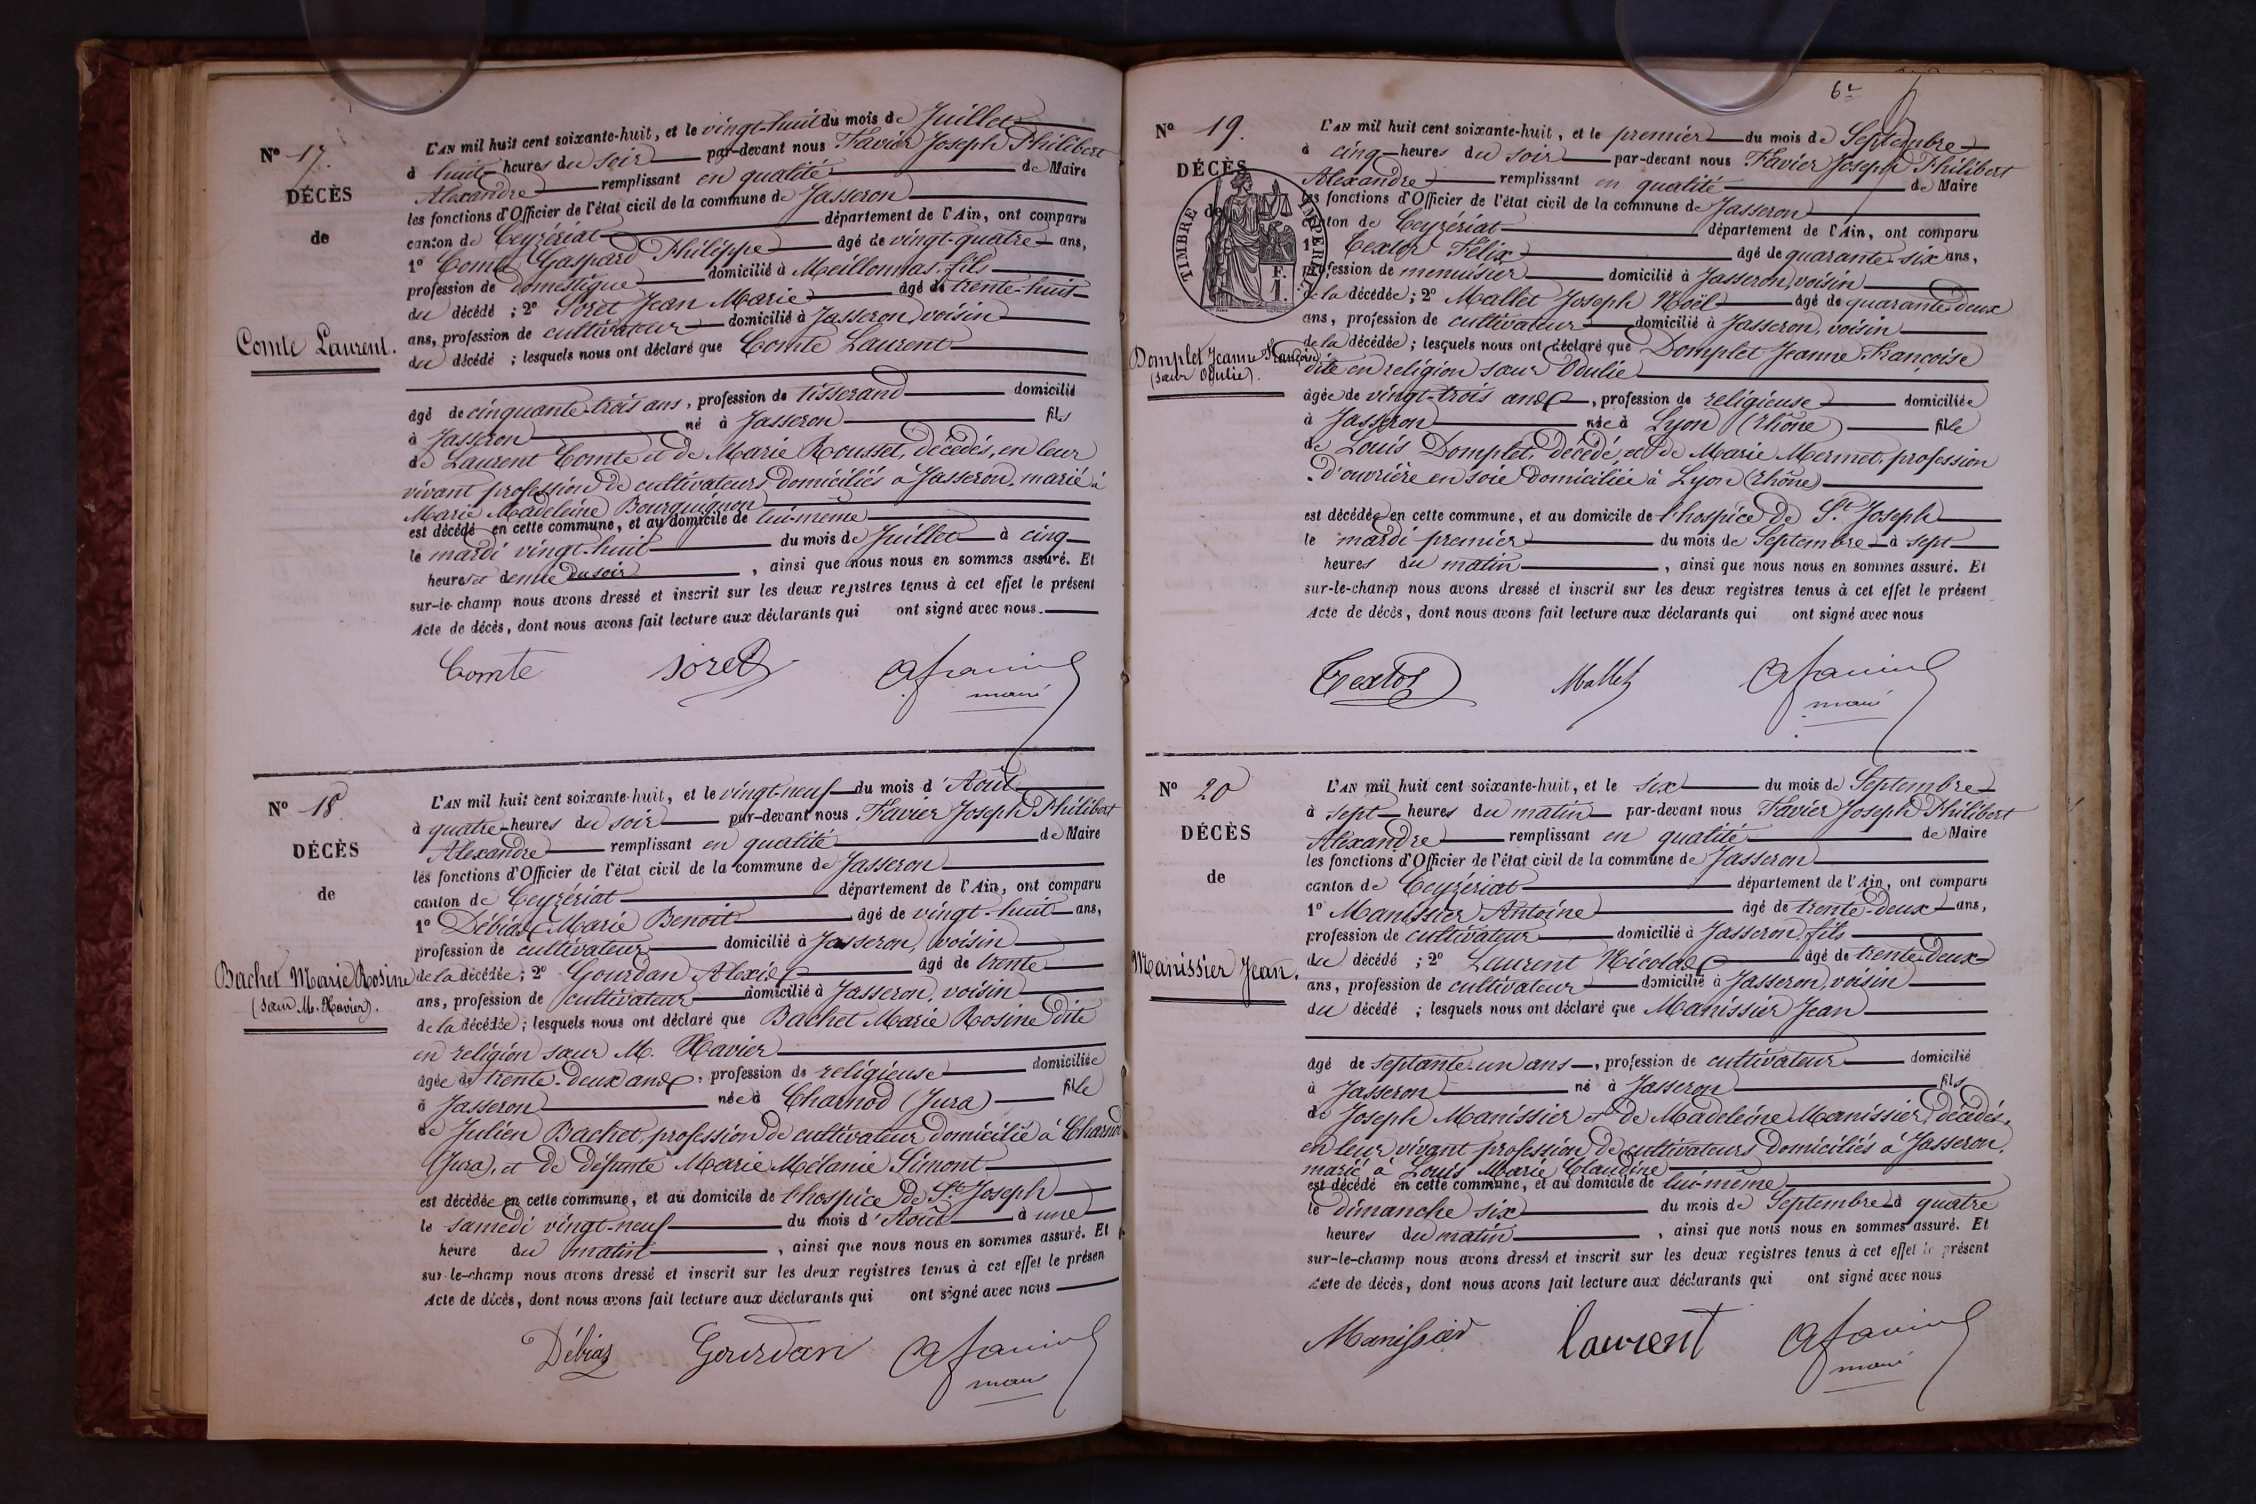 N° 17.
DÉCÈS
de
Comte Laurent.
L'AN mil huit cent soixante-huit, et le vingt-huit du mois de Juillet
à huit heures du soir par-devant nous Favier Joseph Philibert
Alexandre remplissant en qualité de Maire
les fonctions d'Officier de l'état civil de la commune de Jasseron
canton de Ceyzériat département de l'Ain, ont comparu
1° Comte Gaspard Philippe âgé de vingt-quatre ans,
profession de domestique domicilié à Meillonnas, fils
du décédé ; 2° Soret Jean Marie âgé de trente-huit
ans, profession de cultivateur domicilié à Jasseron, voisin
du décédé ; lesquels nous ont déclaré que Comte Laurent
âgé de cinquante-trois ans, profession de tisserand domicilié
à Jasseron né à Jasseron fils
de Laurent Comte et de Marie Rousset, décédés, en leur
vivant profession de cultivateurs domiciliés à Jasseron, marié à
Marie Madeleine Bourguignon
est décédé en cette commune, et au domicile de lui-même
le mardi vingt-huit du mois de Juillet à cinq
heures et demie du soir , ainsi que nous nous en sommes assuré. Et
sur-le-champ nous avons dressé et inscrit sur les deux registres tenus à cet effet le présent
Acte de décès, dont nous avons fait lecture aux déclarants qui ont signé avec nous.
Comte Soret Afavier
maire
N° 18.
DÉCÈS
de
Bachet Marie Rosine
(sœur M. Xavier).
L'AN mil huit cent soixante-huit, et le vingt-neuf du mois d'Août
à quatre heures du soir par-devant nous Favier Joseph Philibert
Alexandre remplissant en qualité de Maire
les fonctions d'Officier de l'état civil de la commune de Jasseron
canton de Ceyzériat département de l'Ain, ont comparu
1° Débias Marie Benoit âgé de vingt-huit ans,
profession de cultivateur domicilié à Jasseron, voisin
de la décédée ; 2° Gourdan Alexis âgé de trente
ans, profession de cultivateur domicilié à Jasseron, voisin
de la décédée ; lesquels nous ont déclaré que Bachet Marie Rosine dite
en religion sœur M. Xavier
âgée de trente-deux ans, profession de religieuse domiciliée
à Jasseron née à Charnod (Jura) fille
de Julien Bachet, profession de cultivateur domicilié à Charnod
(Jura), et de défunte Marie Mélanie Simont
est décédée en cette commune, et au domicile de l'hospice de St. Joseph
le samedi vingt-neuf du mois d'Août à une
heure du matin , ainsi que nous nous en sommes assuré. Et
sur-le-champ nous avons dressé et inscrit sur les deux registres tenus à cet effet le présen
Acte de décès, dont nous avons fait lecture aux déclarants qui ont signé avec nous
Débias Gourdan Afavier
maire
N° 19.
DÉCÈS
de
TIMBRE IMPERIAL
F.
1.
Domplet Jeanne Françoise
(sœur Odulie).
L'AN mil huit cent soixante-huit, et le premier du mois de Septembre
à cinq heures du soir par-devant nous Favier Joseph Philibert
Alexandre remplissant en qualité de Maire
les fonctions d'Officier de l'état civil de la commune de Jasseron
canton de Ceyzériat département de l'Ain, ont comparu
1° Textor Félix âgé de quarante-six ans,
profession de menuisier domicilié à Jasseron, voisin
de la décédée ; 2° Mallet Joseph Noël âgé de quarante-deux
ans, profession de cultivateur domicilié à Jasseron, voisin
de la décédée ; lesquels nous ont déclaré que Domplet Jeanne Françoise
dite en religion sœur Odulie
âgée de vingt-trois ans, profession de religieuse domiciliée
à Jasseron née à Lyon (Rhône) fille
de Louis Domplet, décédé, et de Marie Mermet, profession
d'ouvrière en soie domiciliée à Lyon (Rhône)
est décédée en cette commune, et au domicile de l'hospice de St. Joseph
le mardi premier du mois de Septembre à sept
heures du matin , ainsi que nous nous en sommes assuré. Et
sur-le-champ nous avons dressé et inscrit sur les deux registres tenus à cet effet le présent
Acte de décès, dont nous avons fait lecture aux déclarants qui ont signé avec nous
Textor Mallet Afavier
maire
N° 20
DÉCÈS
de
Manissier Jean.
L'AN mil huit cent soixante-huit, et le six du mois de Septembre
à sept heures du matin par-devant nous Favier Joseph Philibert
Alexandre remplissant en qualité de Maire
les fonctions d'Officier de l'état civil de la commune de Jasseron
canton de Ceyzériat département de l'Ain, ont comparu
1° Manissier Antoine âgé de trente-deux ans,
profession de cultivateur domicilié à Jasseron, fils
du décédé ; 2° Laurent Nicolas âgé de trente-deux
ans, profession de cultivateur domicilié à Jasseron, voisin
du décédé ; lesquels nous ont déclaré que Manissier Jean
âgé de septante-un ans, profession de cultivateur domicilié
à Jasseron né à Jasseron fils
de Joseph Manissier et de Madeleine Manissier, décédés,
en leur vivant profession de cultivateurs domiciliés à Jasseron,
marié à Louis Marie Claudine
est décédé en cette commune, et au domicile de lui-même
le dimanche six du mois de Septembre à quatre
heures du matin , ainsi que nous nous en sommes assuré. Et
sur-le-champ nous avons dressé et inscrit sur les deux registres tenus à cet effet le présent
Acte de décès, dont nous avons fait lecture aux déclarants qui ont signé avec nous
Manissier laurent Afavier
maire